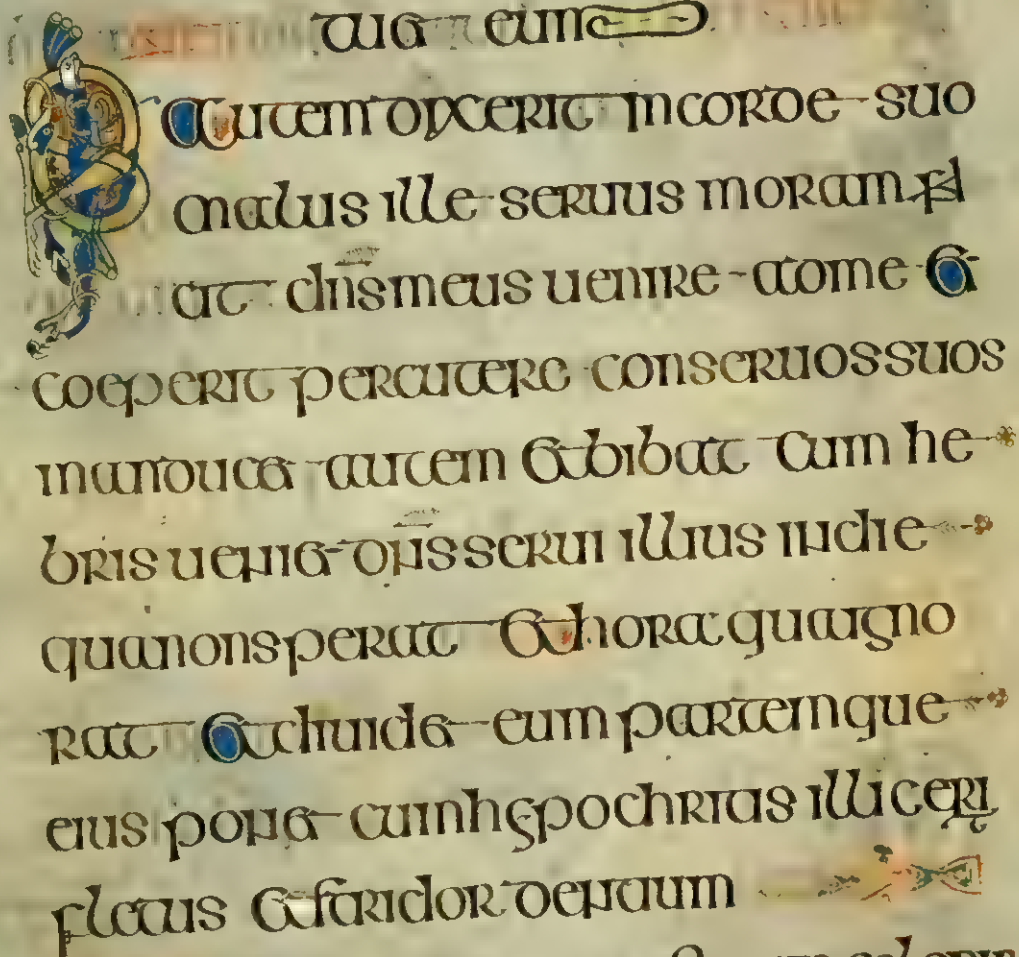 tuet eum
autem dixerit incorde suo
malus ille seruus moram
at dn̄s meus uenire adome et
coeperit percutere conseruos suos
manducet autem et bibat cum he
bris ueniet dn̄s serui illius indie
qua non sperat et hora qua igno
rat et diuidet eum partemque
eius ponet cum hępochritas illic eri
fletus et stridor dentium